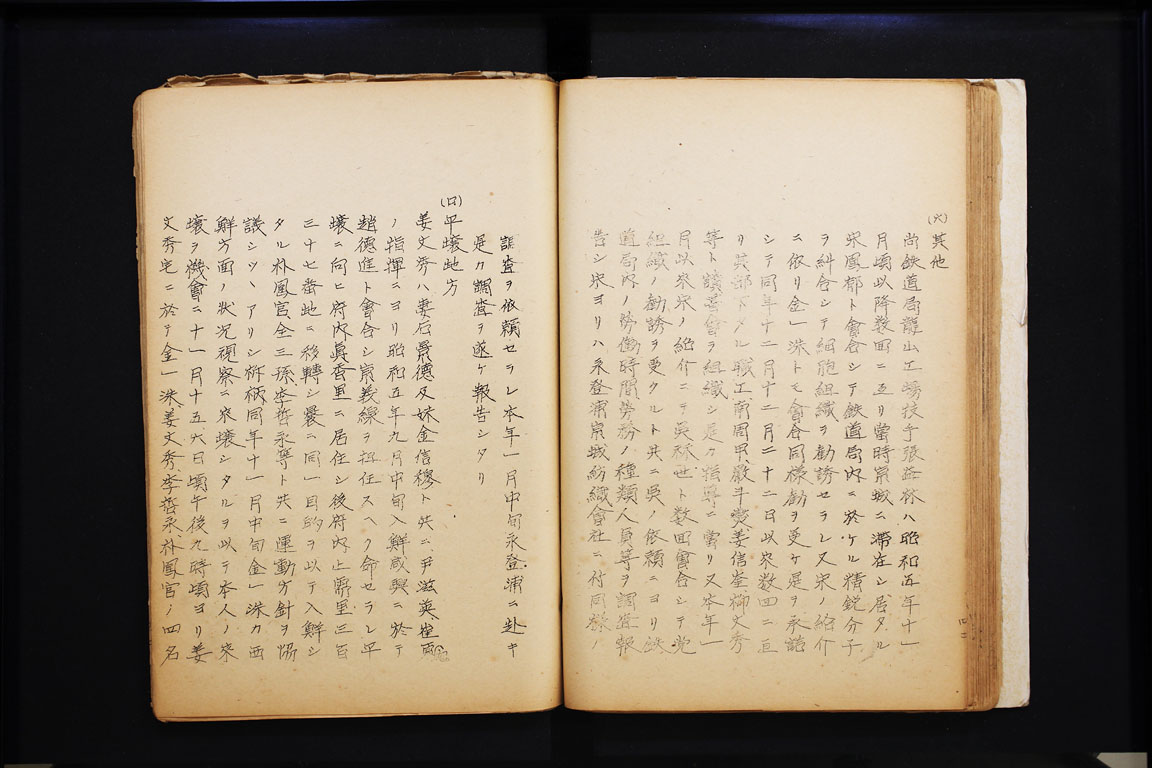 (六) 其他
尚鉄道局龍山工場技手張益林ハ昭和五年十一
月頃以降数回ニ亘リ當時京城ニ滞在シ居タル
宋鳳郁ト會合シテ鉄道局内ニ於ケル精鋭分子
ヲ糾合シテ細胞組織ヲ勧誘セラレ又宋ノ紹介
ニ依リ金一洙トモ會合同様勧ヲ受ケ是ヲ承諾
シテ同年十二月十二月二十二日以来数回ニ亘
リ其部下タル職工南周甲嚴斗燮姜信崙柳文秀
等ト讀書會ヲ組織シ是カ指導ニ當リ又本年一
月以来宋ノ紹介ニテ吴秌世ト数回會合シテ党
組織ノ勧誘ヲ受クルト共ニ吴ノ依頼ニヨリ鉄
道局内ノ労働時間労務ノ種類人員等ヲ調査報
告シ宋ヨリハ永登浦京城紡織會社ニ付同様ノ
調査ヲ依頼セラレ本年一月中旬永登浦ニ赴キ
是カ調査ヲ遂ケ報告シタリ
(口) 平壤地方
姜文秀ハ妻石景德及妹金信穆ト共ニ尹滋英崔
ノ指揮ニヨリ昭和五年九月中旬入鮮咸興ニ於テ
趙德進ト會合シ京義線ヲ担任スヘク命セラレ平
壤ニ向ヒ府内眞香里ニ居住シ後府内上需里三百
三十七番地ニ移轉シ曩ニ同一目的ヲ以テ入鮮シ
タル朴鳳官全三孫李哲永等ト共ニ運動方針ヲ協
議シツヽアリシ折柄同年十一月中旬金一洙カ西
鮮方面ノ状况視察ニ来壤シタルヲ以テ本人ノ来
壤ヲ機會ニ十一月十五六日頃午後九時頃ヨリ姜
文秀宅ニ於テ金一洙姜文秀李哲永朴鳳官ノ四名